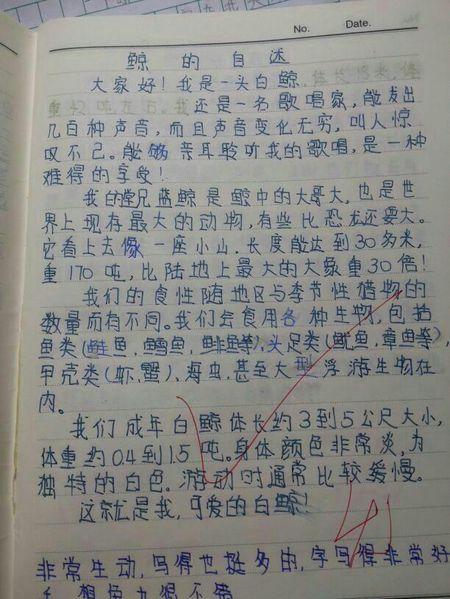 No. Date.
鲸的自述
大家好！我是一头白鲸,体长18米,体
重32吨左右。我还是一名歌唱家，能发出
几百种声音，而且声音变化无穷，叫人惊
叹不已。能够亲耳聆听我的歌唱，是一种
难得的享受！
我的堂兄蓝鲸是鲸中的大哥大，也是世
界上现存最大的动物，有些比恐龙还要大。
它看上去像一座小山.长度能达到30多米，
重170吨，比陆地上最大的大象重30倍！
我们的食性随地区与季节性猎物的
数量而有不同。我们会食用各种生物，包括
鱼类(鲑鱼,鳕鱼,鲱鱼等),头足类(鱿鱼,章鱼等),
甲壳类(虾,蟹),海虫,甚至大型浮游生物在
内。
我们成年白鲸体长约3到5公尺大小,
体重约0.4到1.5吨。身体颜色非常淡,为
独特的白色。游动时通常比较缓慢。
这就是我,可爱的白鲸!
非常生动,写得也挺多的,字写得非常好
想象力很不错